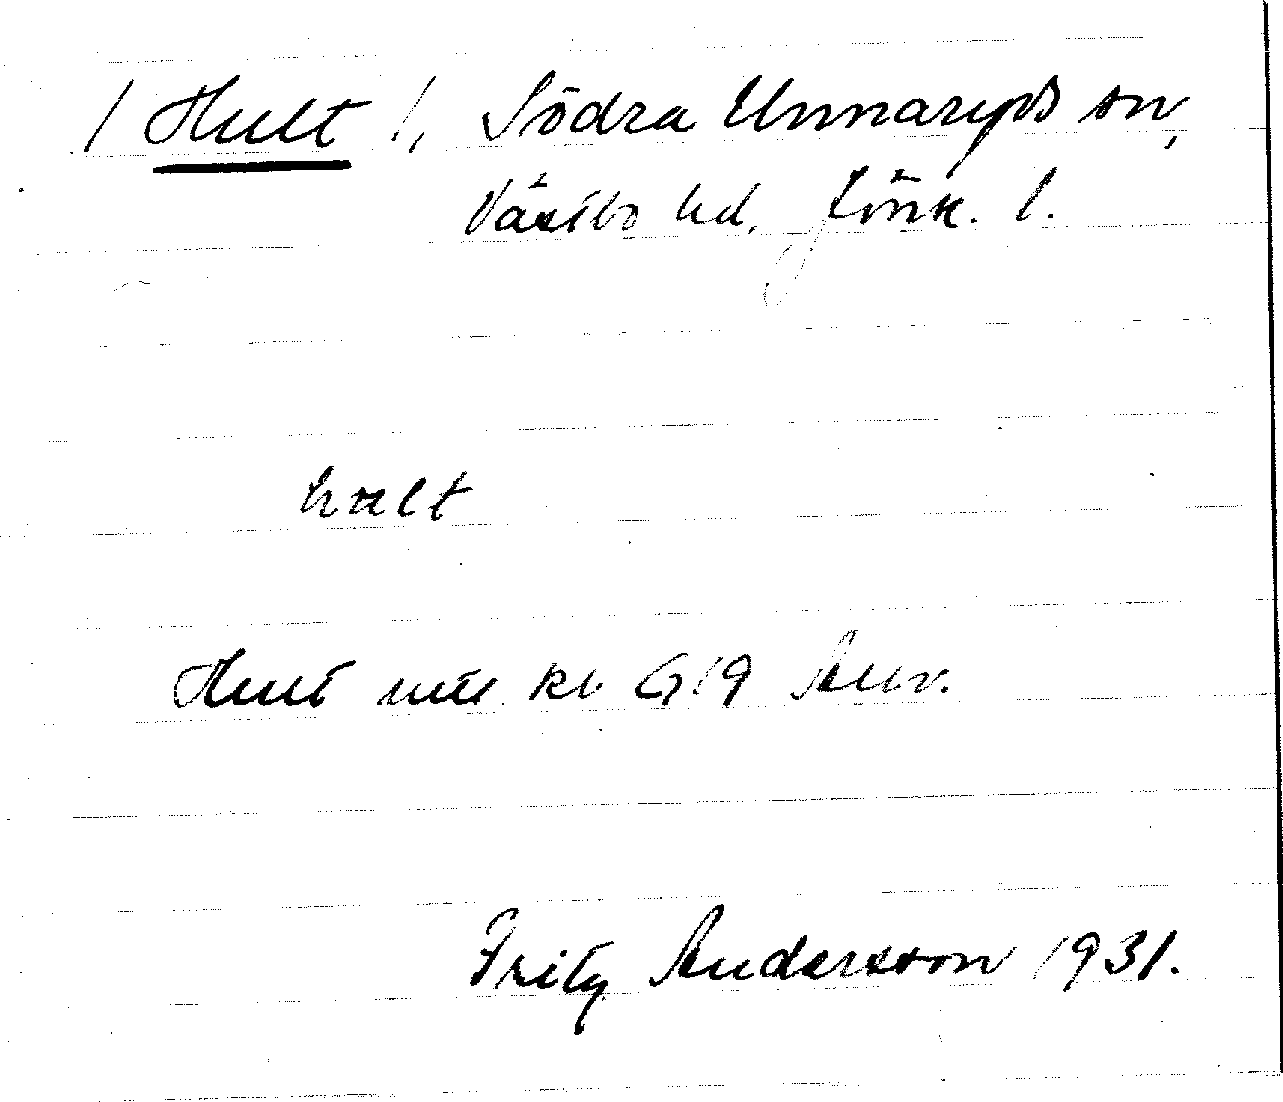 / Hult /, Södra Unnaryds sn,
Västbo hd, Jönk. l.
hult
Hult
Fritz Andersson 1931.